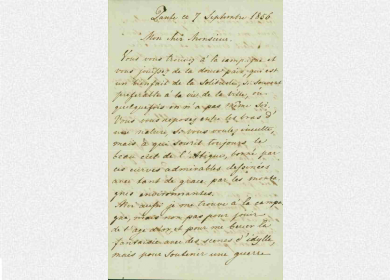 ce 7 Septembre 1856
Mon cher Monsieur.
Vous vous trouvez à la campagne et
vous jouissez de la douce paix qui est
un bienfait de la solitude, si souvent
préférable à la vie de la ville, où
quelquefois on n'a pas même soi.
Vous vous reposez entre les bras d'
une nature, si vous voulez, inculte,
mais à qui sourit toujours le
beau ciel de l'Attique, borné par
ces curves admirables dessinées
avec tant de grace par les montag
nes environnantes.
Moi aussi je me trouve à la campa
gne, mais non pas pour jouir
de l'age d'or, et pour me bercer la
fantaisie avec des scenes d'idylle,
mais pour soutenir une guerre